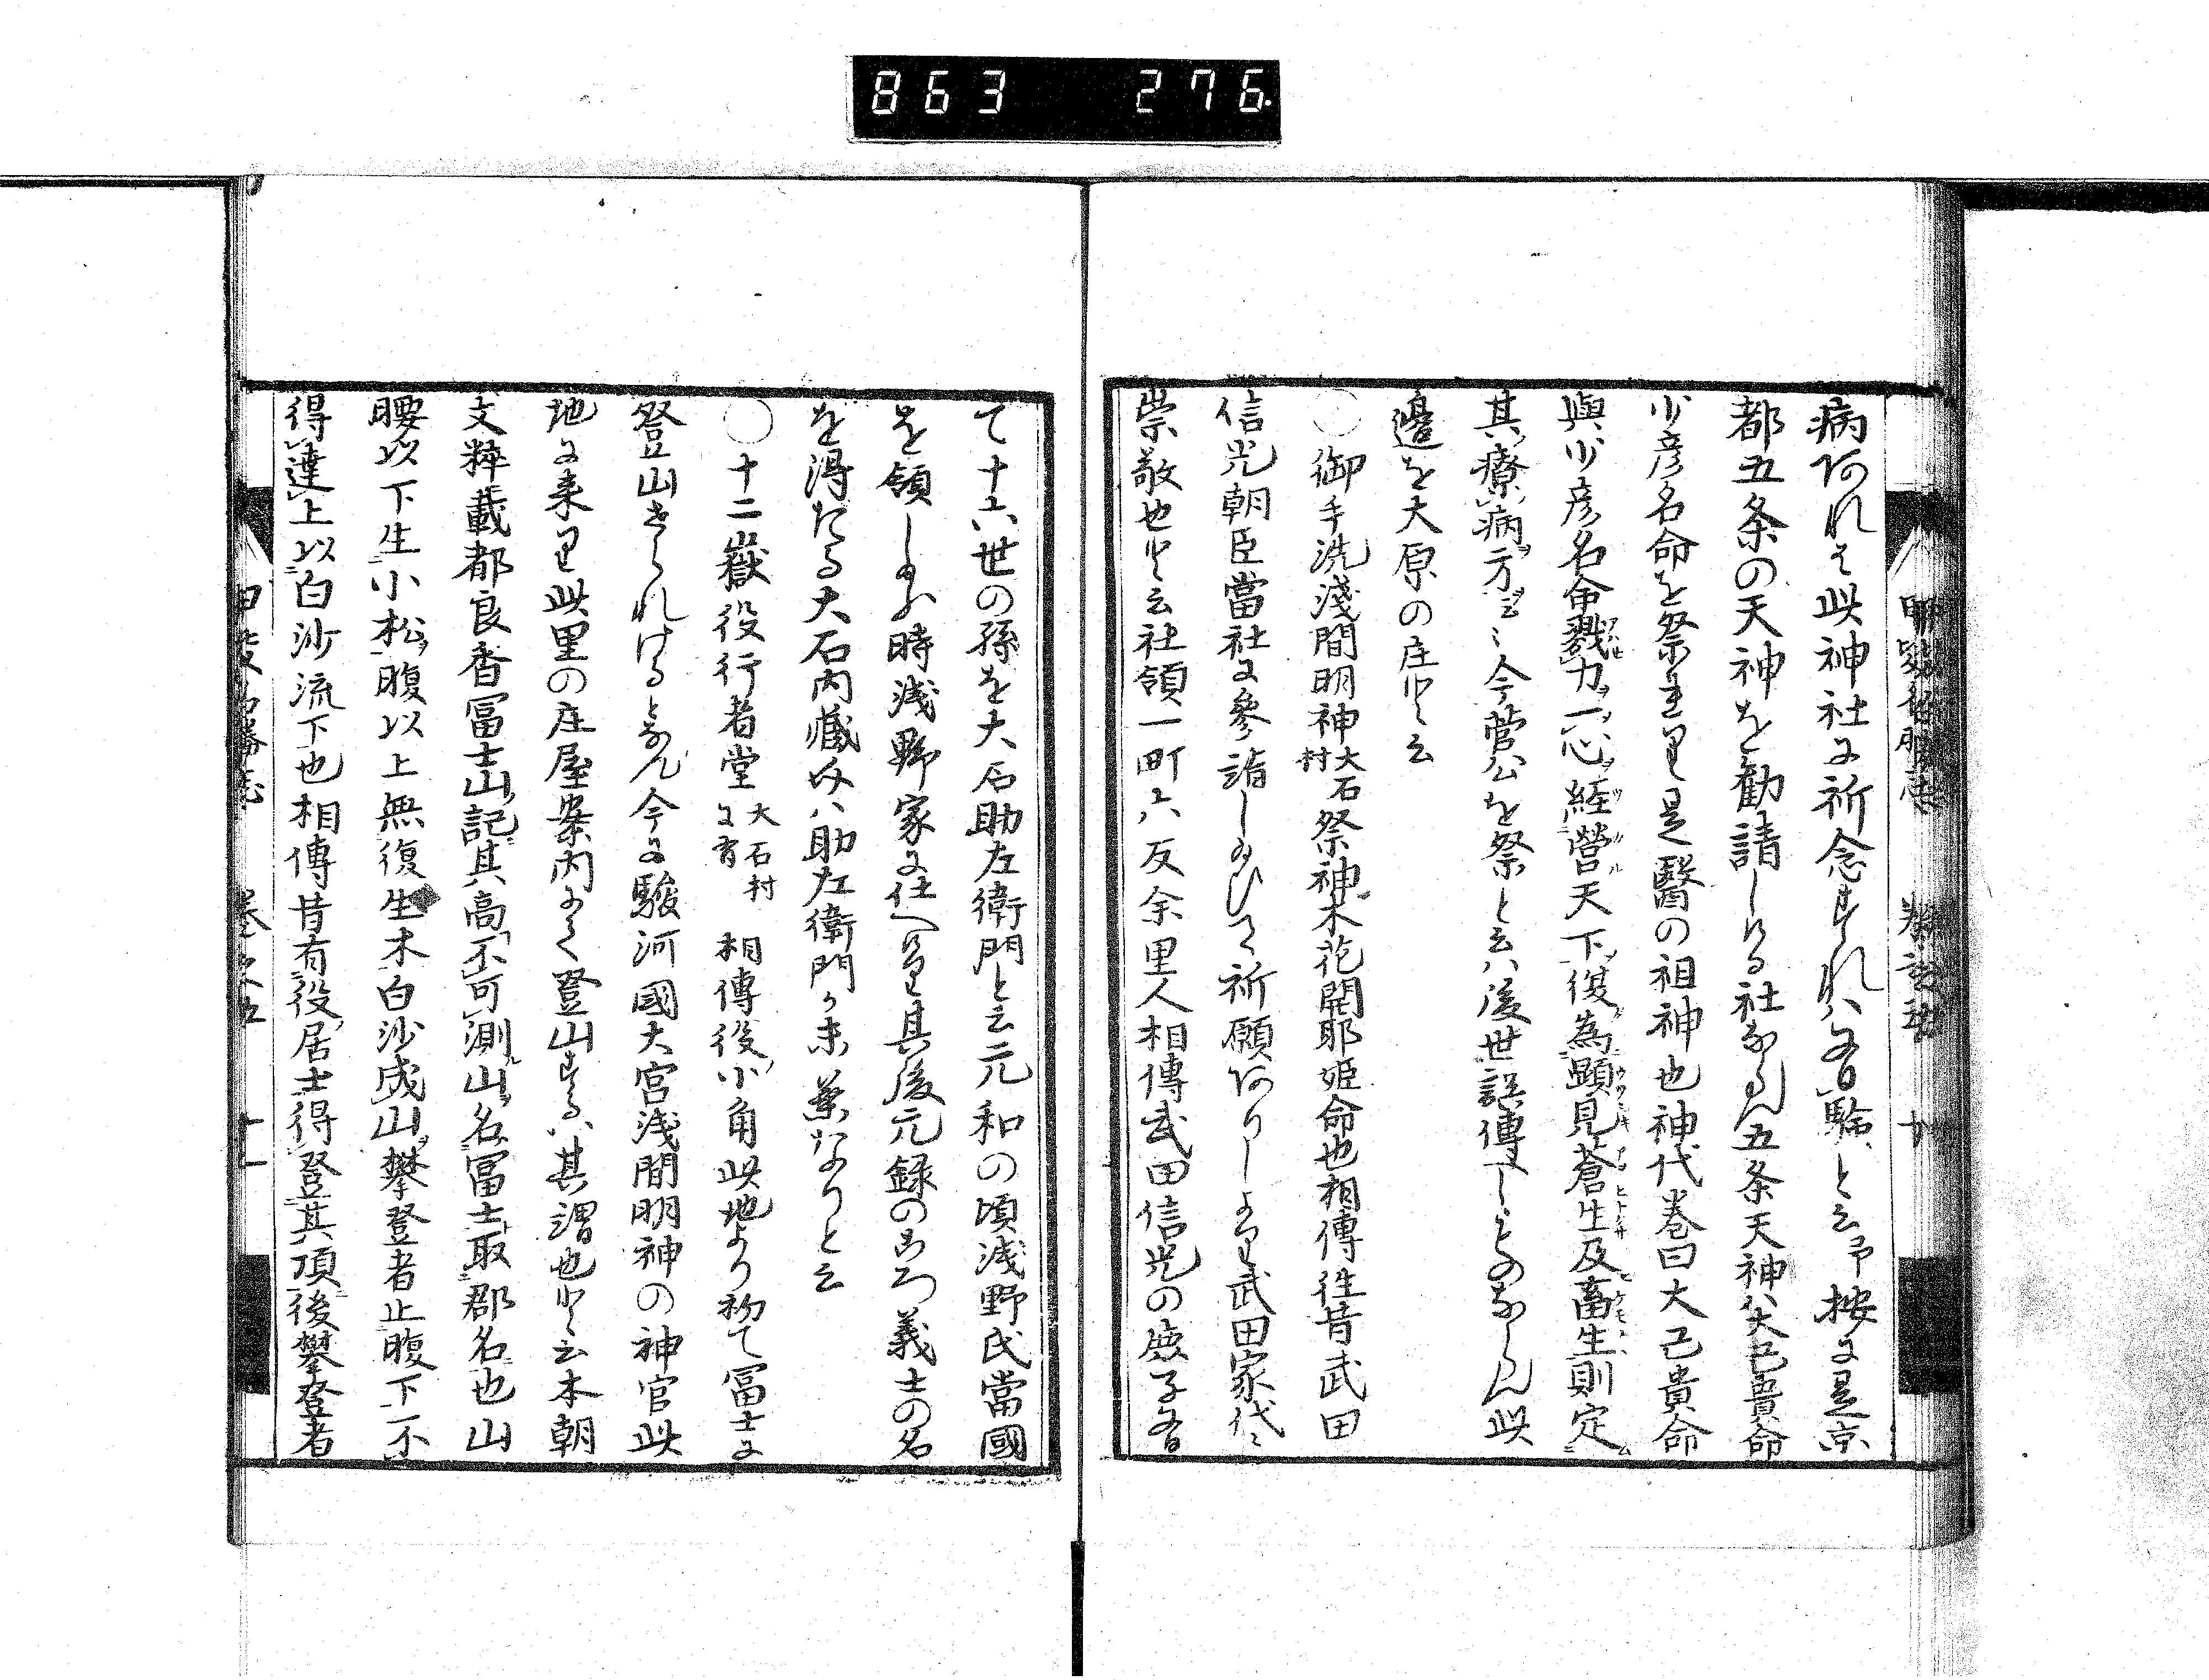 863 276
病あれは此神社に祈念すれハ必有驗と云予按に是京
都五条の天神を勧請しける社ならん五条天神ハ大己貴命
少彦名命を祭れり是醫の祖神也神代巻曰大己貴命
與少彦名命戮力一心経營天下復為顕見蒼生及畜生則定
其療病方云々今菅公を祭と云ハ後世誤傳しものならん此
邊を大原の庄と云
〇御手洗淺間明神大石村祭神木花開耶姫命也相傳往昔武田
信光朝臣當社に參詣し給ひて祈願ありしより武田家代々
崇敬也と云社領一町六反余里人相傳武田信光の庶子有
て十六世の孫を大石助左衛門と云元和の頃浅野氏當國
を領し給ふ時浅野家に仕へけり其後元録のころ義士の名
を得たる大石内藏介ハ助左衛門か末葉なりと云
〇十二嶽役行者堂大石村に有 相傳役小角此地より初て冨士に
登山せられけるとなん今に駿河國大宮浅間明神の神官此
地に来り此里の庄屋案内にて登山するハ其謂也と云本朝
文粹載都良香冨士山記其高不可測山名冨士取郡名也山
腰以下生小松腹以上無復生木白沙成山攀登者止腹下不
得達上以白沙流下也相傳昔有役居士得登其頂後攀登者
巻之五 十一